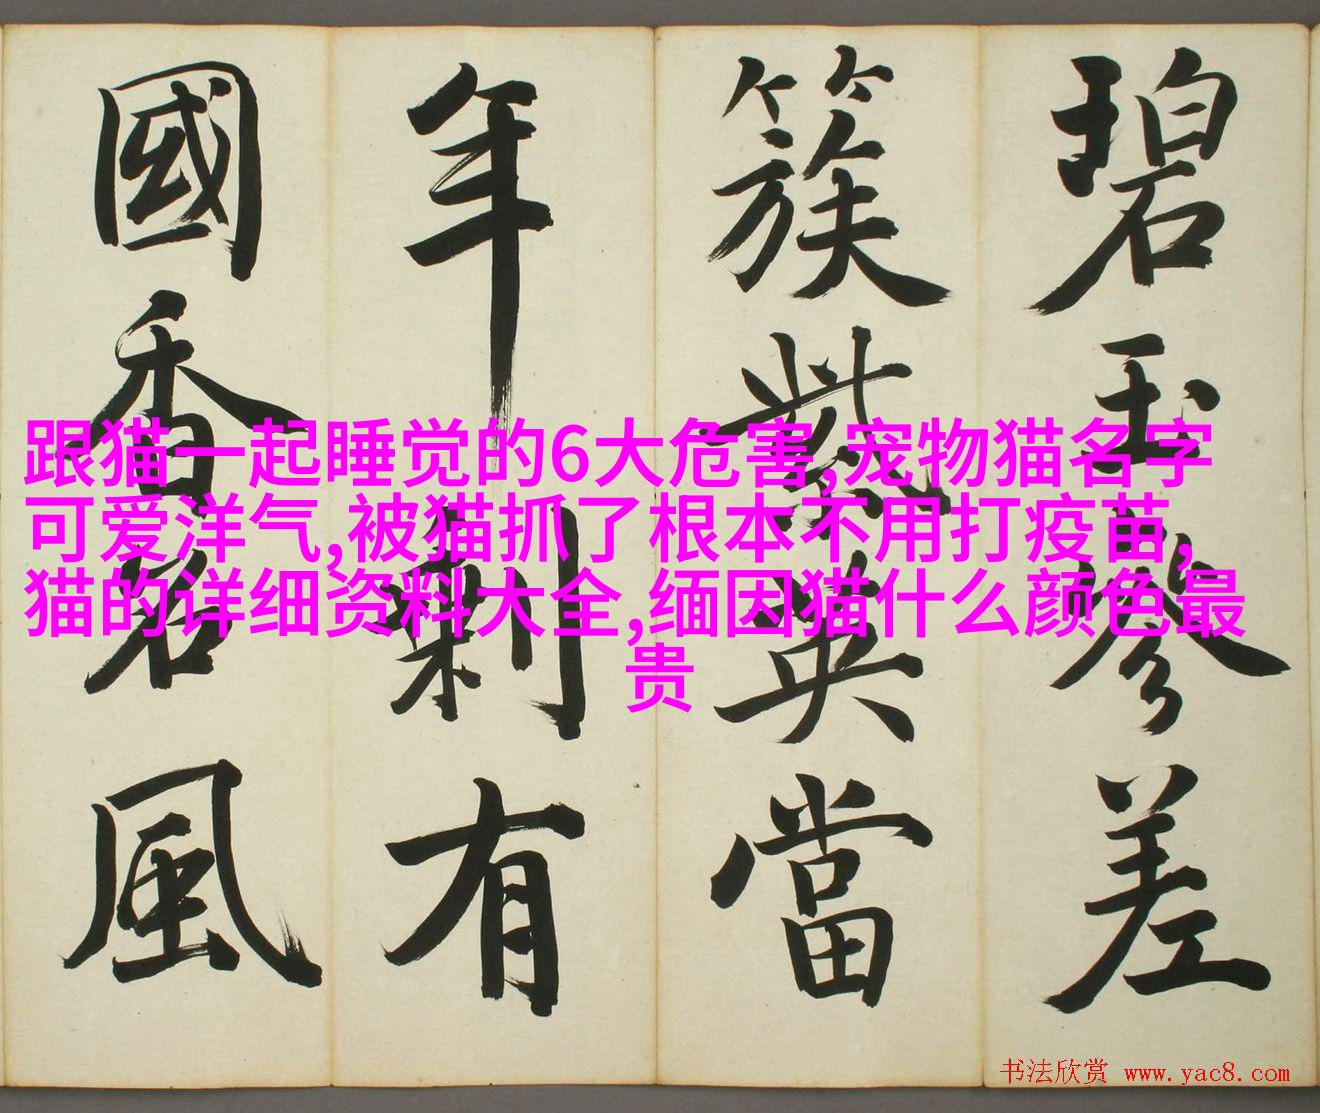 碧玉參差
簇紫英當
年剩有
國香名風
跟猫一起睡觉的6大危害,宠物猫名字
可爱洋气,被猫抓了根本不用打疫苗,
猫的详细资料大全,缅因猫什么颜色最
贵
书法欣赏 www.yac8.com